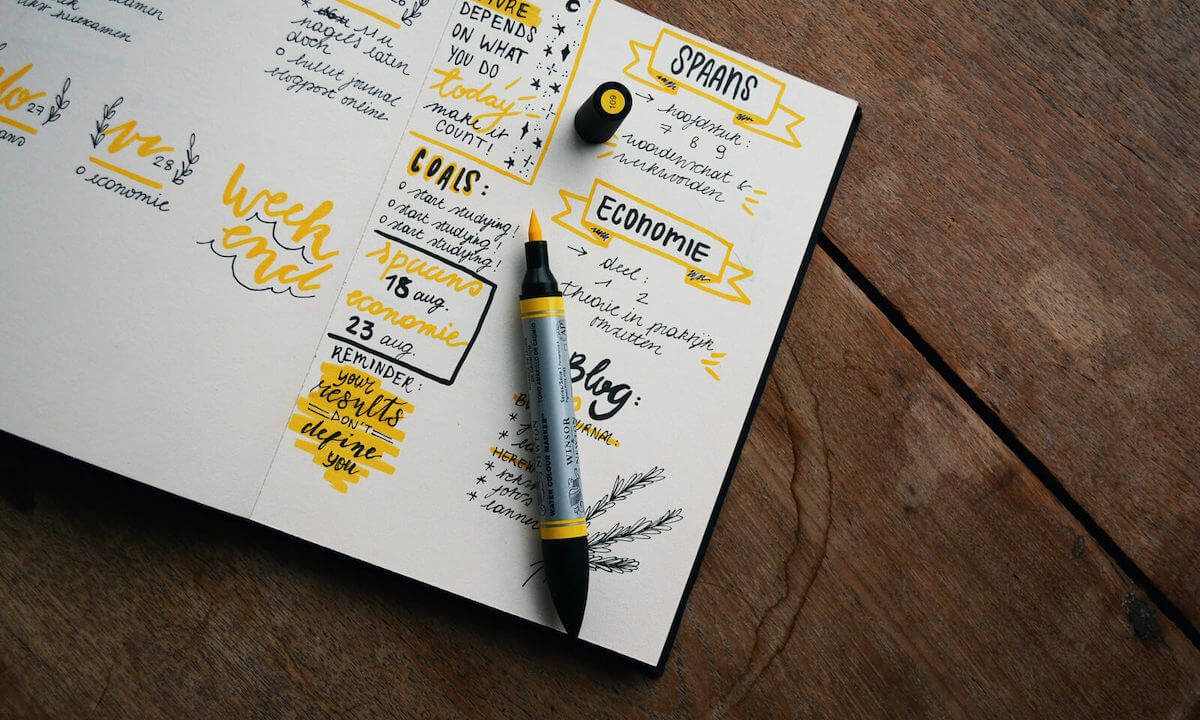 examen
huiswerk examen
nagels laten
doch
o bullet journal
blogpost online
27
vr 28
o economie
week
end
DEPENDS
ON WHAT
YOU DO
today
make it
COUNT!
GOALS:
o start studying!
o start studying!
o start studying!
spaans
18 aug.
economie
23 aug.
REMINDER:
your
results
DON'T
define
you
109
SPAANS
→ hoofdstuk:
7 8 9
woordenschat &
werkwoorden
ECONOMIE
→ deel:
1 2
theorie in praktijk
omzetten
Blog:
JOURNAL:
* foto's
WINSOR
& NEWTON
WATER COLOUR MARKER